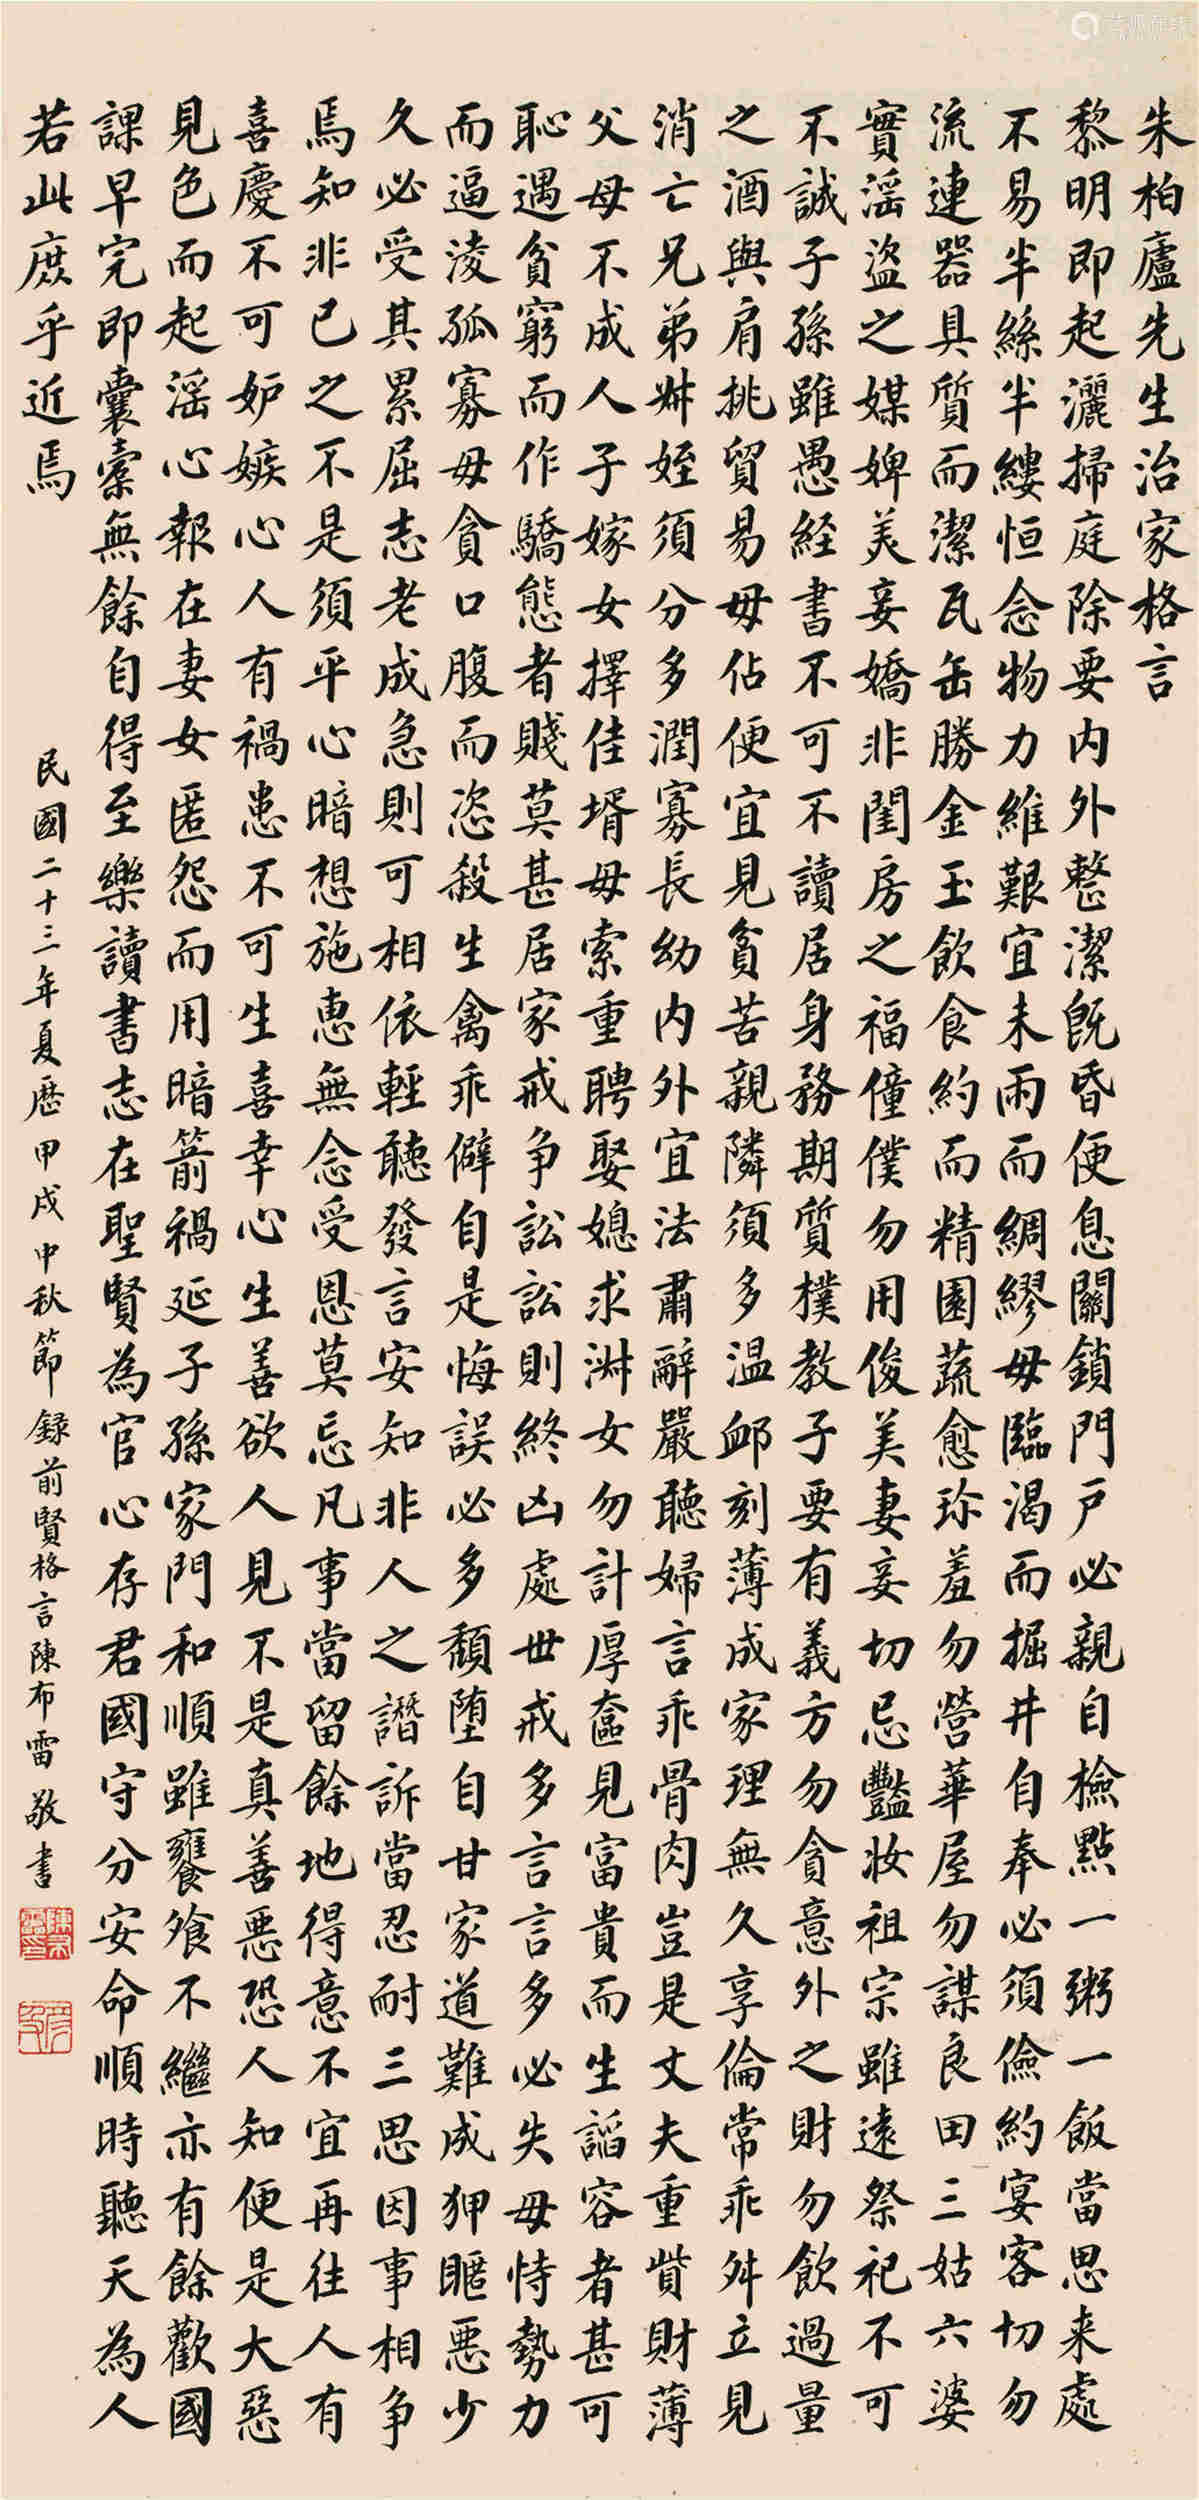 朱柏廬先生治家格言
黎明即起灑掃庭除要内外整潔既昏便息關鎖門戶必親自檢點一粥一飯當思来處
不易半絲半縷恒念物力維艱宜未雨而綢繆毋臨渴而掘井自奉必須儉約宴客切勿
流連器具質而潔瓦缶勝金玉飲食約而精園蔬愈珍羞勿營華屋勿謀良田三姑六婆
實淫盜之媒婢美妾嬌非閨房之福僮僕勿用俊美妻妾切忌豔妝祖宗雖遠祭祀不可
不誠子孫雖愚経書不可不讀居身務期質樸教子要有義方勿貪意外之財勿飲過量
之酒與肩挑貿易毋佔便宜見貧苦親隣須多温卹刻薄成家理無久享倫常乖舛立見
消亡兄弟叔姪須分多潤寡長幼内外宜法肅辭嚴聽婦言乖骨肉豈是丈夫重貲財薄
父母不成人子嫁女擇佳壻毋索重聘娶媳求淑女勿計厚奩見富貴而生謟容者甚可
恥遇貧窮而作驕態者賤莫甚居家戒争訟訟則終凶處世戒多言言多必失毋恃勢力
而逼淩孤寡毋貪口腹而恣殺生禽乖僻自是悔誤必多頹堕自甘家道難成狎暱惡少
久必受其累屈志老成急則可相依輕聽發言安知非人之譖訴當忍耐三思因事相争
焉知非己之不是須平心暗想施恵無念受恩莫忘凡事當留餘地得意不宜再往人有
喜慶不可妒嫉心人有禍患不可生喜幸心生善欲人見不是真善惡恐人知便是大惡
見色而起淫心報在妻女匿怨而用暗箭禍延子孫家門和順雖饔飧不繼亦有餘歡國
課早完即囊橐無餘自得至樂讀書志在聖賢為官心存君國守分安命順時聽天為人
若此庶乎近焉
民國二十三年夏歷甲戌中秋節錄前賢格言陳布雷敬書